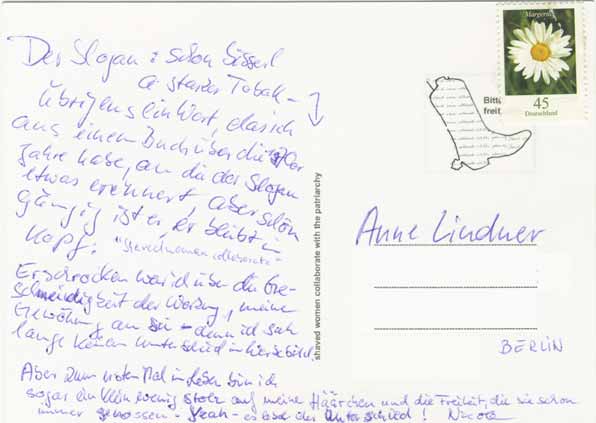 Der Slogan: schon bisserl
a starker Tobak –
Übrigens ein Wort, das ich
aus einem Buch über die 70er
Jahre habe, an die der Slogan
etwas erinnert aber schön
gängig ist er, er bleibt im
Kopf: "shaved women collaborate"
Erschrocken war ich über die Ge-
schmeidigkeit der Werbung, meine
Gewöhnung an sie – denn ich sah
lange keinen Unterschied im
Aber zum ersten Mal im Leben bin ich
sogar ein klein wenig stolz auf meine Häärchen und die Freiheit, die sie schon
immer genossen – Yeah – es lebe der Unterschied! Nicola
shaved women collaborate with the patriarchy
Margerite
45
Deutschland
Bitte
frei
Anne Lindner
BERLIN